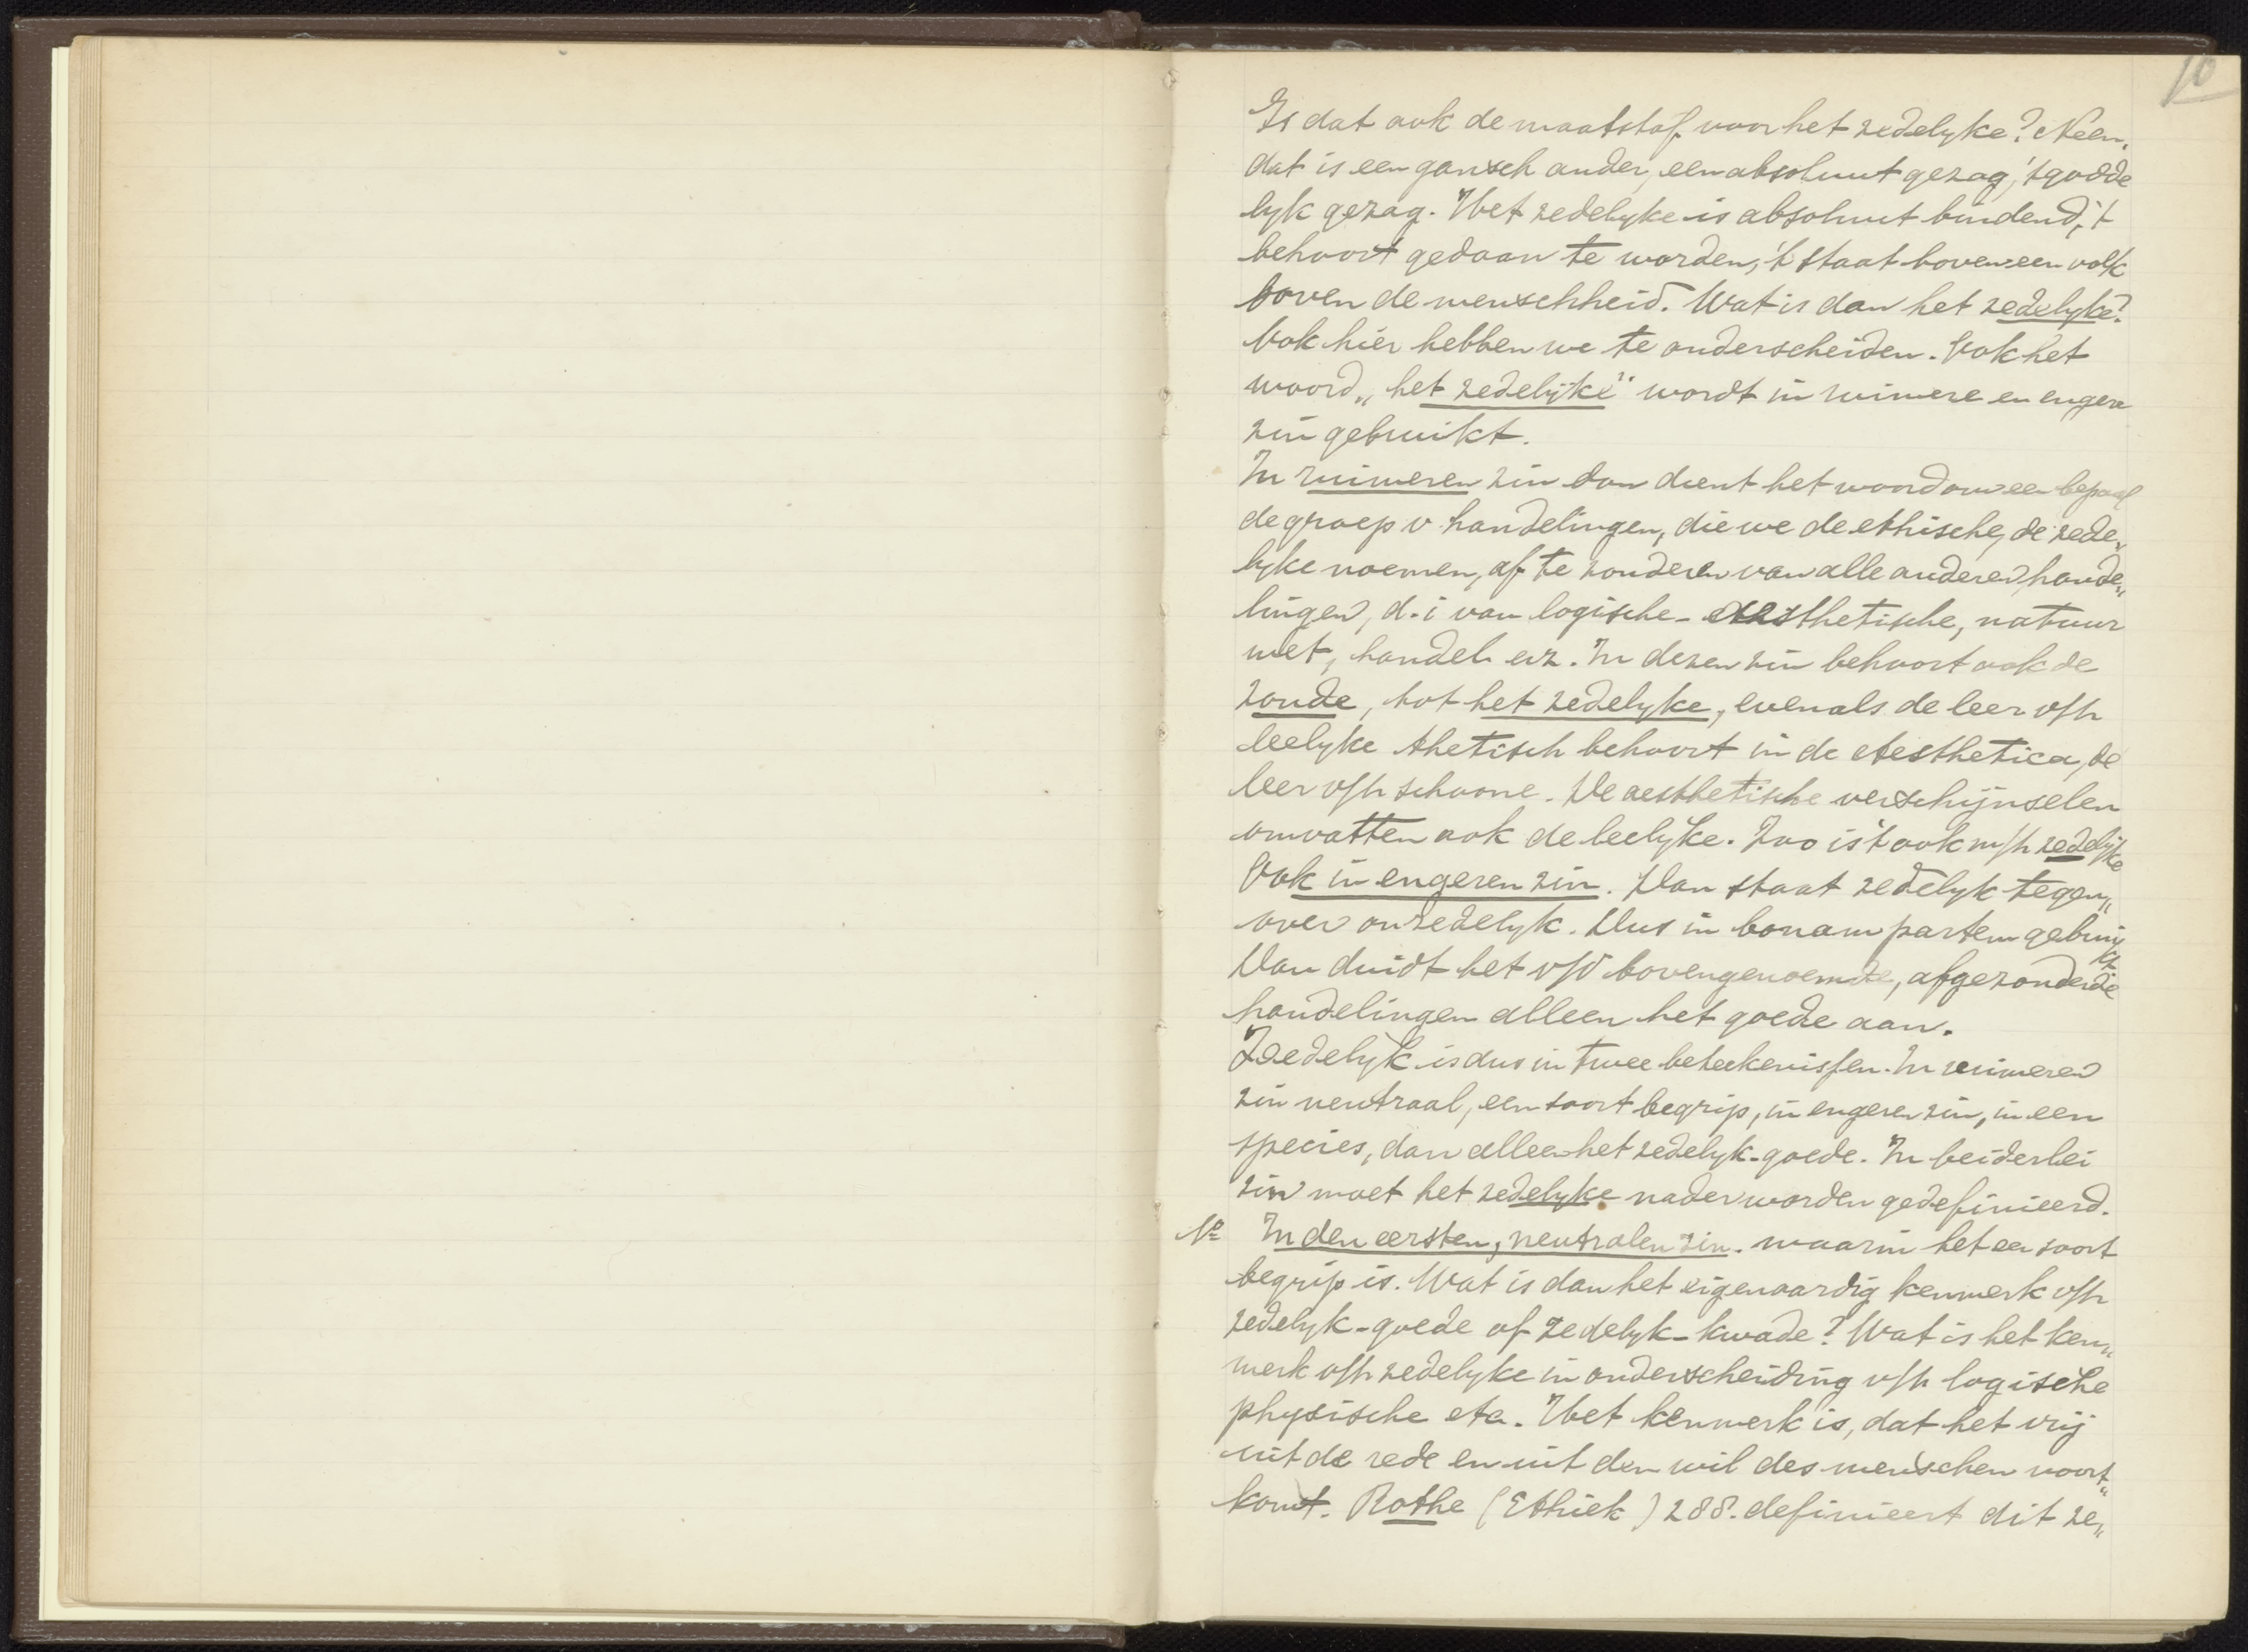 10
Is dat ook de maatstaf voor het zedelyke? Neen,
dat is een gansch ander, een absoluut gezag, 't godde
lyk gezag. Het zedelyke is absoluut bindend, 't
behoort gedaan te worden, 't staat boven een volk
boven de menschheid. Wat is dan het zedelyke?
Ook hier hebben we te onderscheiden. Ook het
woord „het zedelijke" wordt in ruimere en engere
zin gebruikt.
In ruimeren zin dan dient het woord om een bepaal
de groep v handelingen, die we de ethische, de zede„
lyke noemen, af te zonderen van alle anderen hande„
lingen, d.i van logische- aesthetische, natuur
wet, handel enz. In dezen zin behoort ook de
zonde, tot het zedelyke, evenals de leer v/h
leelyke thetisch behoort in de Aesthetica, de
leer v/h schoone. De aesthetische verschijnselen
omvatten ook de leelyke. Zoo is 't ook m/h zedelijke
Ook in engeren zin. Dan staat zedelyk tegen„
over onzedelyk. Dus in bonam partem gebruikt
Dan duidt het v/d bovengenoemde, afgezonderde
handelingen alleen het goede aan.
Zedelijk is dus in twee beteekenissen. In ruimeren
zin neutraal, een soort begrip, in engeren zin, in een
species, dan alleen het zedelyk-goede. In beiderlei
zin moet het zedelyke nader worden gedefinieerd.
No In den eersten, neutralen zin. waarin het een soort
begrip is. Wat is dan het eigenaardig kenmerk v/h
zedelyk-goede of zedelyk-kwade? Wat is het ken„
merk v/h zedelyke in onderscheiding v/h logische
physische etc. Het kenmerk is, dat het vrij
uit de rede en uit den wil des menschen voort„
komt. Rothe (Ethiek) 288. definieert dit ze„